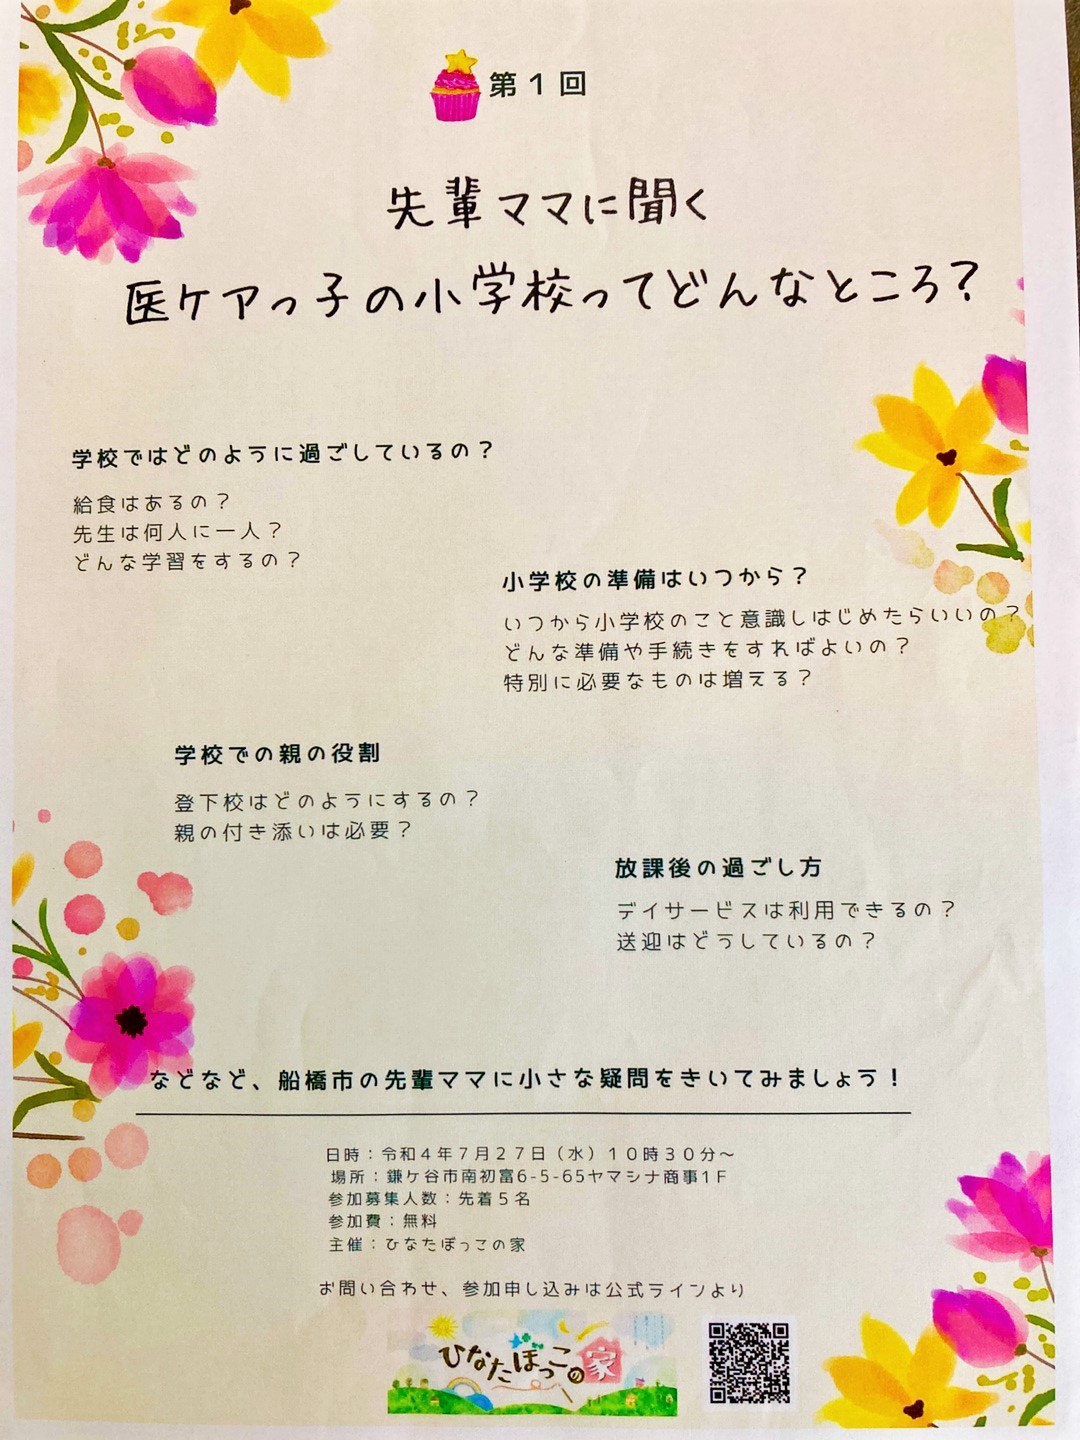 第１回
先輩ママに聞く
医ケアっ子の小学校ってどんなところ？
学校ではどのように過ごしているの？
給食はあるの？
先生は何人に一人？
どんな学習をするの？
小学校の準備はいつから？
いつから小学校のこと意識しはじめたらいいの？
どんな準備や手続きをすればよいの？
特別に必要なものは増える？
学校での親の役割
登下校はどのようにするの？
親の付き添いは必要？
放課後の過ごし方
デイサービスは利用できるの？
送迎はどうしているの？
などなど、船橋市の先輩ママに小さな疑問をきいてみましょう！
日時：令和４年７月２７日（水）１０時３０分～
場所：鎌ケ谷市南初富6-5-65ヤマシナ商事1Ｆ
参加募集人数：先着５名
参加費：無料
主催：ひなたぼっこの家
お問い合わせ、参加申し込みは公式ラインより
ひなたぼっこの家